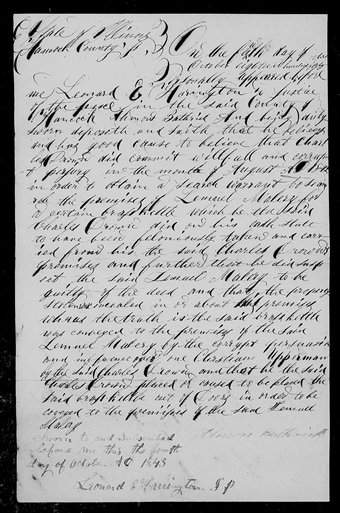 State of Illinois
Hancock County
On the day of
October eighteen hundred
personally appeared before
me Leonard E Harrington a Justice
of the peace in the said County of
Hancock And being duly
Sworn deposeth and saith that he believes
and has good cause to believe that Charl
es Crown did commit willfull and corrup
t perjury in the month of August A D
in order to obtain a search warrant to sear
ch the premises of Lemuel Malery for
a certain brass kettle which he the said
Charles Crown did on his oath state
to have been feloniously taken and carr
ied from his the said Charles Crown's
premises and further that he did susp
ect the said Lemuel Malery to be
guilty of the deed and that the property
was in or about his premises
whereas the truth is the said brass kettle
was conveyed to the premises of the said
Lemuel Malery by the corrupt persuasion
and influence over one Christian Upperman
by the said Charles Crown and that he the said
Charles Crown placed or caused to be placed the
said brass kettle out of doors in order to be
conveyed to the premises of the said Lemuel
Malery
Sworn to and Subscribed
before me this the fourth
day of October AD 1843
Leonard E Harrington J P